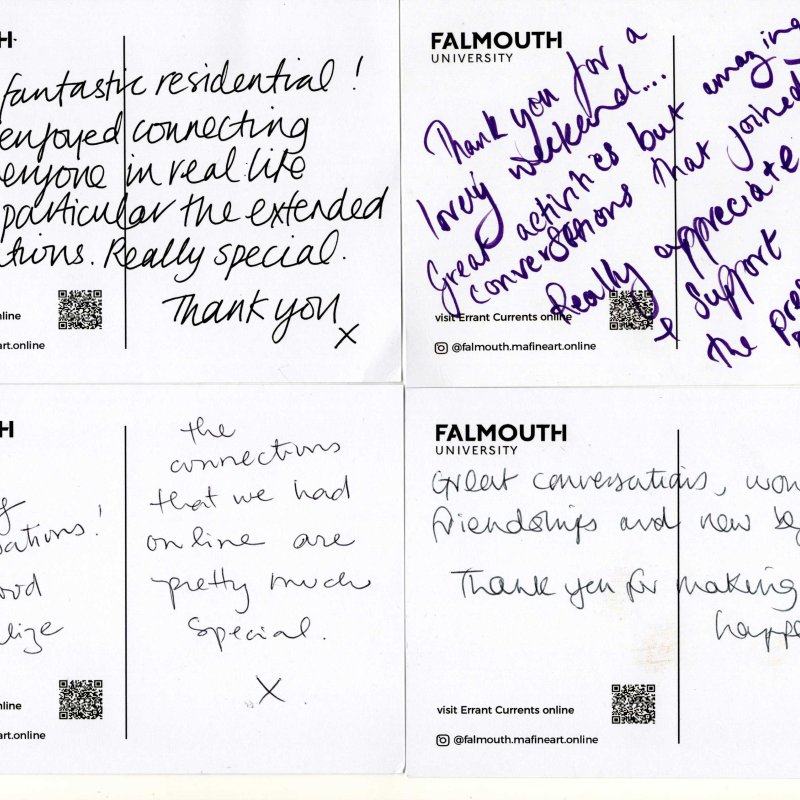 H
fantastic residential !
enjoyed connecting
in real life
particular the extended
Really special.
Thank you
x
nline
art.online
FALMOUTH
UNIVERSITY
Thank you for a
lovely weekend...
Great activities but amazing
conversations that joined
Really appreciate
& support
the
visit Errant Currents online
@falmouth.mafineart.online
H
!
the
connections
that we had
online are
pretty much
special.
X
nline
art.online
FALMOUTH
UNIVERSITY
Great conversations, won
friendships and new be
Thank you for making
happe
visit Errant Currents online
@falmouth.mafineart.online